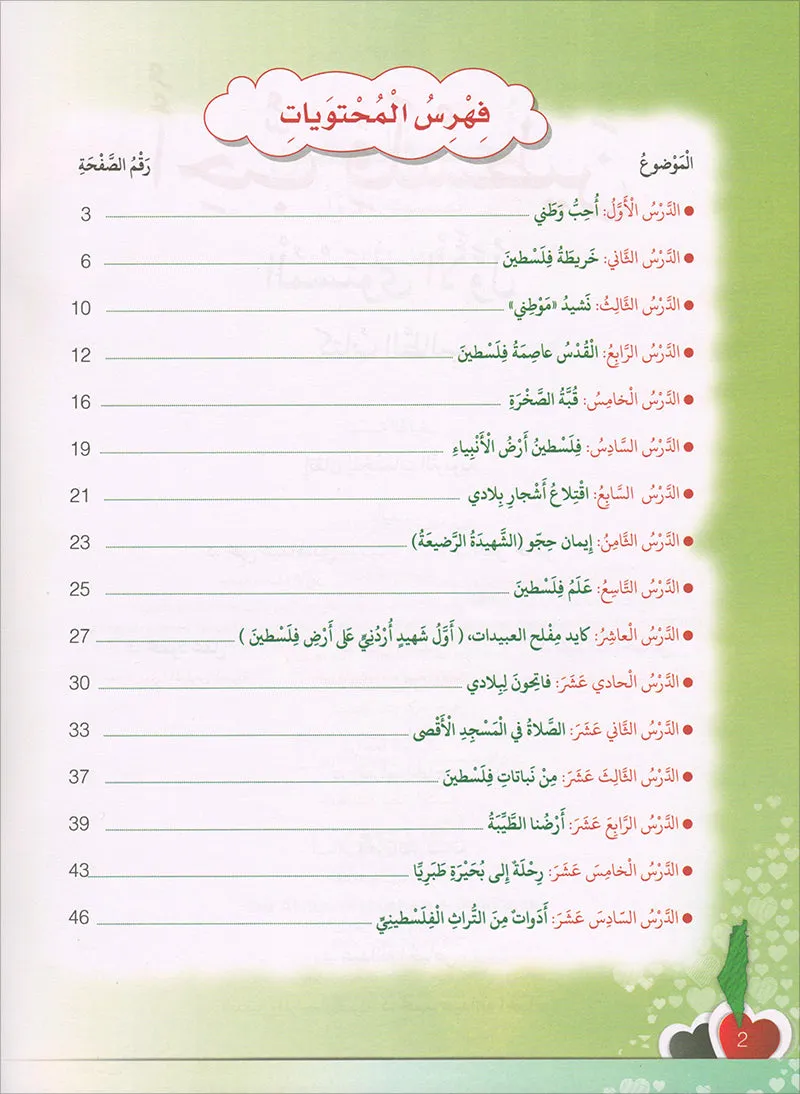 فِهْرِسُ الْمُحْتَوَياتِ
الْمَوْضوعُ رَقْمُ الصَّفْحَةِ
● الدَّرْسُ الْأَوَّلُ: أُحِبُّ وَطَني 3
● الدَّرْسُ الثَّاني: خَريطَةُ فِلَسْطينَ 6
● الدَّرْسُ الثَّالِثُ: نَشيدُ «مَوْطِني» 10
● الدَّرْسُ الرَّابِعُ: الْقُدْسُ عاصِمَةُ فِلَسْطينَ 12
● الدَّرْسُ الْخامِسُ: قُبَّةُ الصَّخْرَةِ 16
● الدَّرْسُ السَّادِسُ: فِلَسْطينُ أَرْضُ الْأَنْبِياءِ 19
● الدَّرْسُ السَّابِعُ: اقْتِلاعُ أَشْجارِ بِلادي 21
● الدَّرْسُ الثَّامِنُ: إيمان حِجّو (الشَّهيدَةُ الرَّضيعَةُ) 23
● الدَّرْسُ التَّاسِعُ: عَلَمُ فِلَسْطينَ 25
● الدَّرْسُ الْعاشِرُ: كايد مِفْلح العبيدات، ( أَوَّلُ شَهيدٍ أُرْدُنِيٍّ عَلى أَرْضِ فِلَسْطينَ ) 27
● الدَّرْسُ الْحادي عَشَرَ: فاتِحونَ لِبِلادي 30
● الدَّرْسُ الثَّاني عَشَرَ: الصَّلاةُ في الْمَسْجِدِ الْأَقْصى 33
● الدَّرْسُ الثَّالِثَ عَشَرَ: مِنْ نَباتاتِ فِلَسْطينَ 37
● الدَّرْسُ الرَّابِعَ عَشَرَ: أَرْضُنا الطَّيِّبَةُ 39
● الدَّرْسُ الْخامِسَ عَشَرَ: رِحْلَةٌ إِلى بُحَيْرَةِ طَبَرِيَّا 43
● الدَّرْسُ السّادِسَ عَشَرَ: أَدَواتٌ مِنَ التُّراثِ الْفِلَسْطينِيِّ 46
2